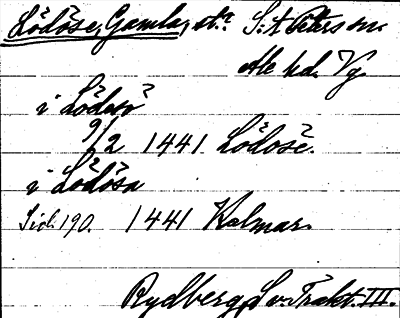 Lödöse, Gamla, st. S:t Peders sn.
Ale hd. Vg.
i Lödosö
9/2 1441 Lödosè.
i Lödösa
Sid. 190. 1441 Kalmar.
Rydberg, Sv. Trakt. III.